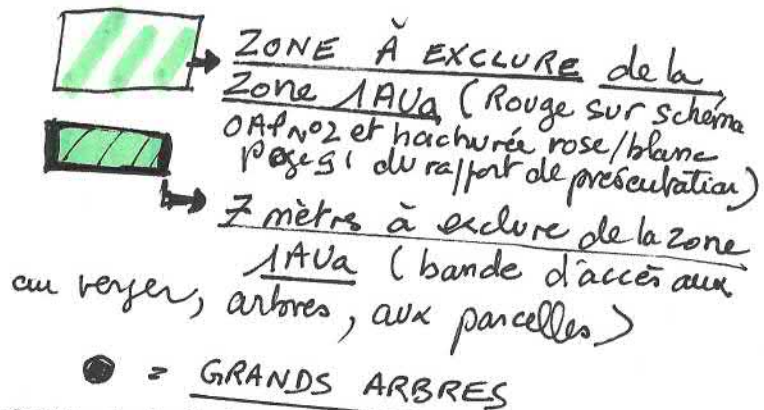 ZONE À EXCLURE de la
Zone 1AUa (Rouge sur schéma
OAP N°2 et hachurée rose/blanc
page 91 du rapport de présentation)
7 mètres à exclure de la zone
1AUa (bande d'accès aux
au verger, arbres, aux parcelles)
= GRANDS ARBRES